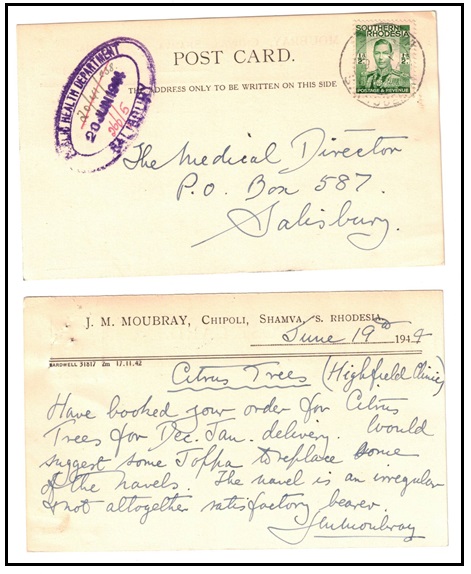 POST CARD.
THE ADDRESS ONLY TO BE WRITTEN ON THIS SIDE
SOUTHERN
RHODESIA
½ D
½ D
POSTAGE & REVENUE
PUBLIC HEALTH DEPARTMENT
20 JUN
SALISBURY
266/5
The Medical Director
P.O. Box 587.
Salisbury.
J. M. MOUBRAY, CHIPOLI, SHAMVA, S. RHODESIA
June 19th 194
BARDWELL 31817 2m 17.11.42
Citrus Trees (Highfield Clinic)
Have booked your order for Citrus
Trees for Dec. Jan. delivery. Would
suggest some Joppa to replace some
of the navels. The navel is an irregular
& not altogether satisfactory bearer.
JMMoubray